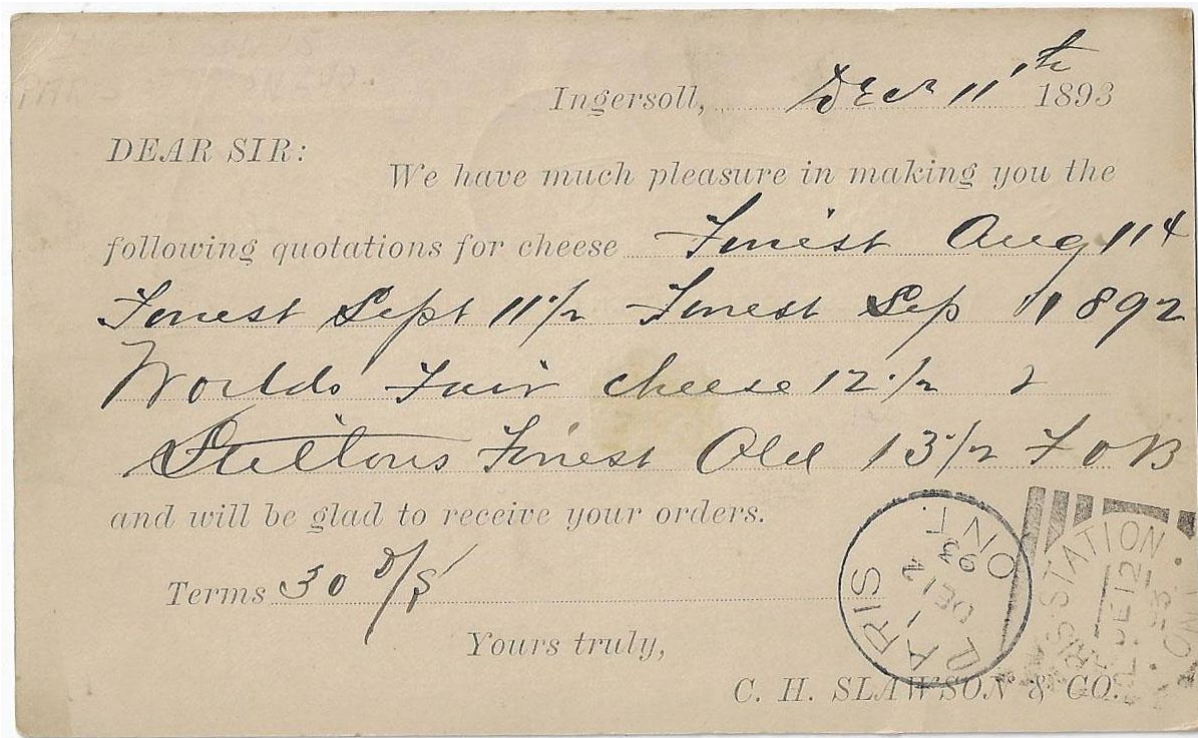 Ingersoll, Decr 11th 1893
DEAR SIR:
We have much pleasure in making you the
following quotations for cheese Finest Aug 11¼
Finest Sept 11½ Finest Sep 1892
Worlds Fair cheese 12½ &
Stiltons Finest Old 13½ F O B
and will be glad to receive your orders.
Terms 30 D/S
Yours truly,
C. H. SLAWSON & CO.
PARIS
DE 12
93
ONT.
PARIS STATION
DE 12
93
ONT